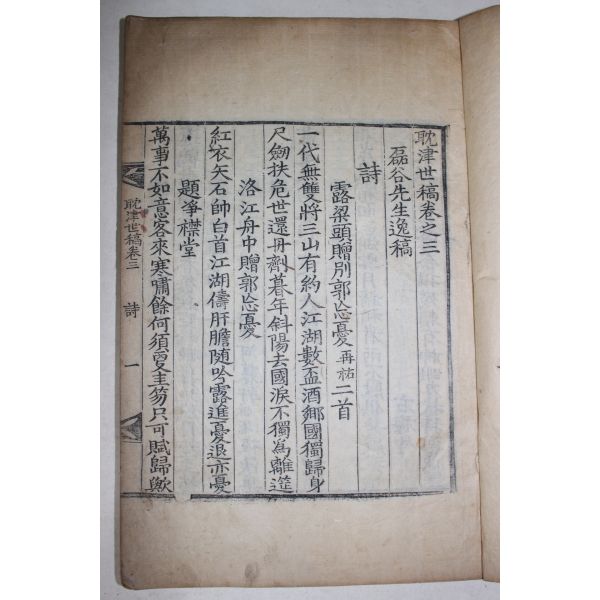 耽津世稿卷之三
磊谷先生逸稿
詩
露梁頭贈別郭忘憂再祐二首
一代無雙將三山有約人江湖數盃酒鄕國獨歸身
尺劒扶危世還丹劑暮年斜陽去國淚不獨為離筵
洛江舟中贈郭忘憂
紅衣矢石帥白首江湖儔肝膽随吟露進憂退亦憂
題爭襟堂
萬事不如意客來寒嘯餘何須更圭笏只可賦歸歟
耽津世稿卷三 詩 一